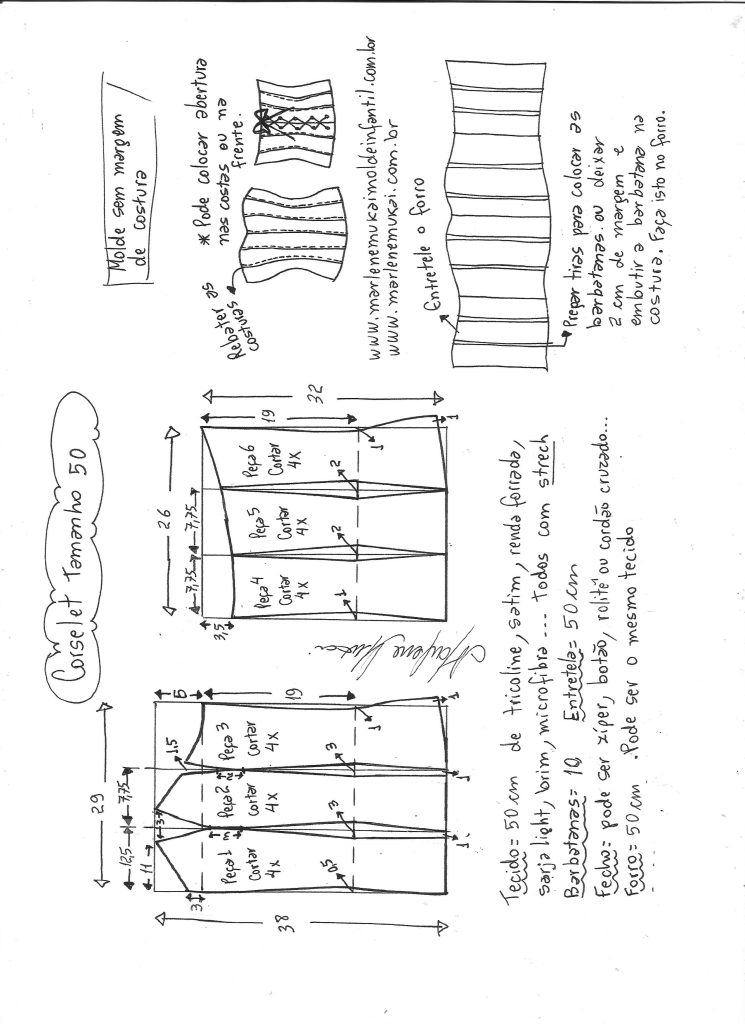 Corselet Tamanho 50
Molde sem margem
de costura
29
12,5
7,75
11
3
5
1,5
3
38
19
Peça 1
Cortar
4X
Peça 2
Cortar
4X
Peça 3
Cortar
4X
3
2
0,5
3
3
1
1
1
1
26
7,75
7,75
3,5
19
32
Peça 4
Cortar
4X
Peça 5
Cortar
4X
Peça 6
Cortar
4X
1
2
2
1
1
Rebater as
costuras
* Pode colocar abertura
nas costas ou na
frente.
www.marlenemukaimoldeinfantil.com.br
www.marlenemukai.com.br
Entretele o forro
Pregar tiras para colocar as
barbatanas. ou deixar
2 cm de margem e
embutir a barbatana na
costura. Faça isto no forro.
Tecido = 50 cm de tricoline, satim, renda forrada,
sarja light, brim, microfibra ... Todos com strech
Barbatanas = 10 Entretela = 50 cm
Fecho = pode ser xíper, botão, rolitê ou cordão cruzado...
Forro = 50 cm . Pode ser o mesmo tecido